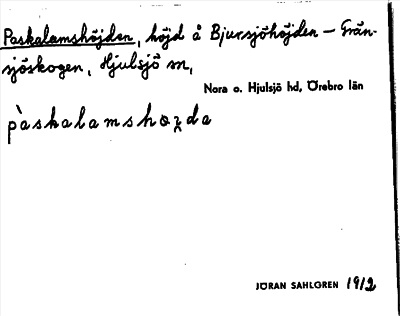 Paskalamshöjden, höjd å Bjursjöhöjden – Grän-
sjöskogen, Hjulsjö sn,
Nora o. Hjulsjö hd, Örebro län
pàskalamshɷʒda
JÖRAN SAHLGREN 1912